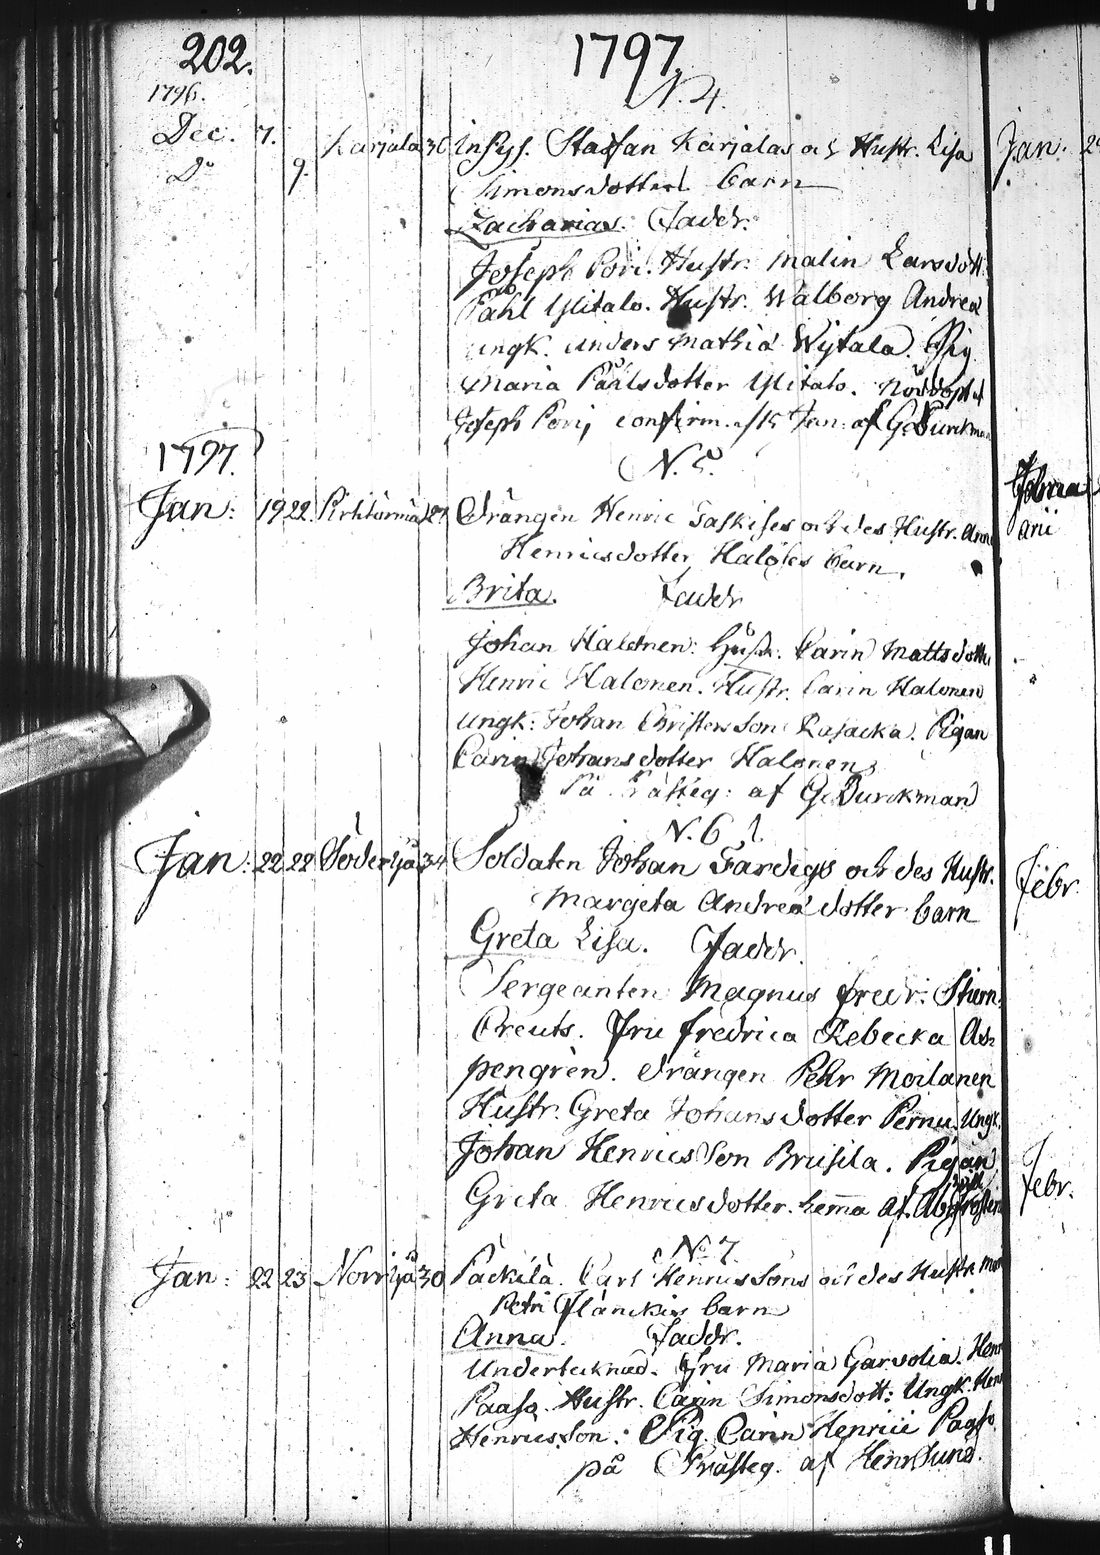 202.
1797.
1796.
N. 4.
Dec. 7. Karjala 36 Inhys. Staffan Karjalas och Hustr. Lisa
Do 9. Simonsdotters barn
Zacharias. Faddr.
Joseph Pori. Hustr. Malin Larsdott.
Påhl Ylitalo. Hustr. Walborg Andreä
ungk. Anders Mathiä Pig.
Maria Påhlsdotter Ylitalo. Nöddöpt af
Joseph Pori, confirm. d. 15 Jan: af G. Burckman
1797.
N. 5.
Jan: 19 22. 27 Drängen Henric och des Hustr. Anna
Henricsdotter Halo͞es barn.
Brita. Faddr
Johan Halonen. Hustr. Carin Mattsdotter
Henric Halonen. Hustr. Carin Halonen
ungk: Johan Christersson Rajacka. Pigan
Carin Johansdotter Halonen
På Prästeg: af G. Burckman
N. 6
Jan: 22 22 Söder 34 Soldaten Johan Färdigs och des Hustr.
Margeta Andreä dotter barn
Greta Lisa. Faddr.
Sergeanten Magnus Fredr: Stiern
Creuts. Fru Fredrica Rebecka As-
pengren. Drängen Pehr Moilanen
Hustr. Greta Johansdotter Pernu. Ungk.
Johan Henricsson Brusila. Pigan
Greta Henricsdotter. hemma af
No 7
Jan: 22 23 Norr 30 Päckilä. Carl Henricssons och des Hustr.
Petri barn
Anna. Faddr.
Undertecknad. Fru Maria Garvolia. Henr
Paaso. Hustr. Carin Simonsdott: Ungk. Henr
Henricsson. Pig. Carin Henrici Paaso.
på Prästeg. af Henr Sund.
Jan.
Febr.
Febr.